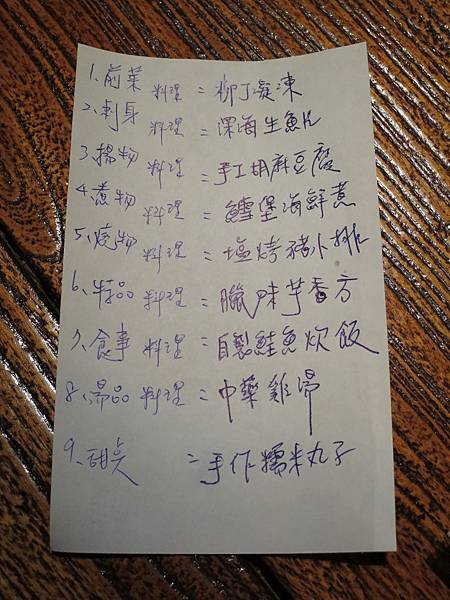 1、前菜 料理=柳丁凝凍
2、刺身 料理=深海生魚片
3、揚物 料理=手工胡麻豆腐
4、煮物 料理=鱈堡海鮮煮
5、燒物 料理=塩烤豬小排
6、特品 料理=臘味芋香方
7、食事 料理=自製鮭魚炊飯
8、湯品 料理=中藥雞湯
9、甜点 =手作糯米丸子